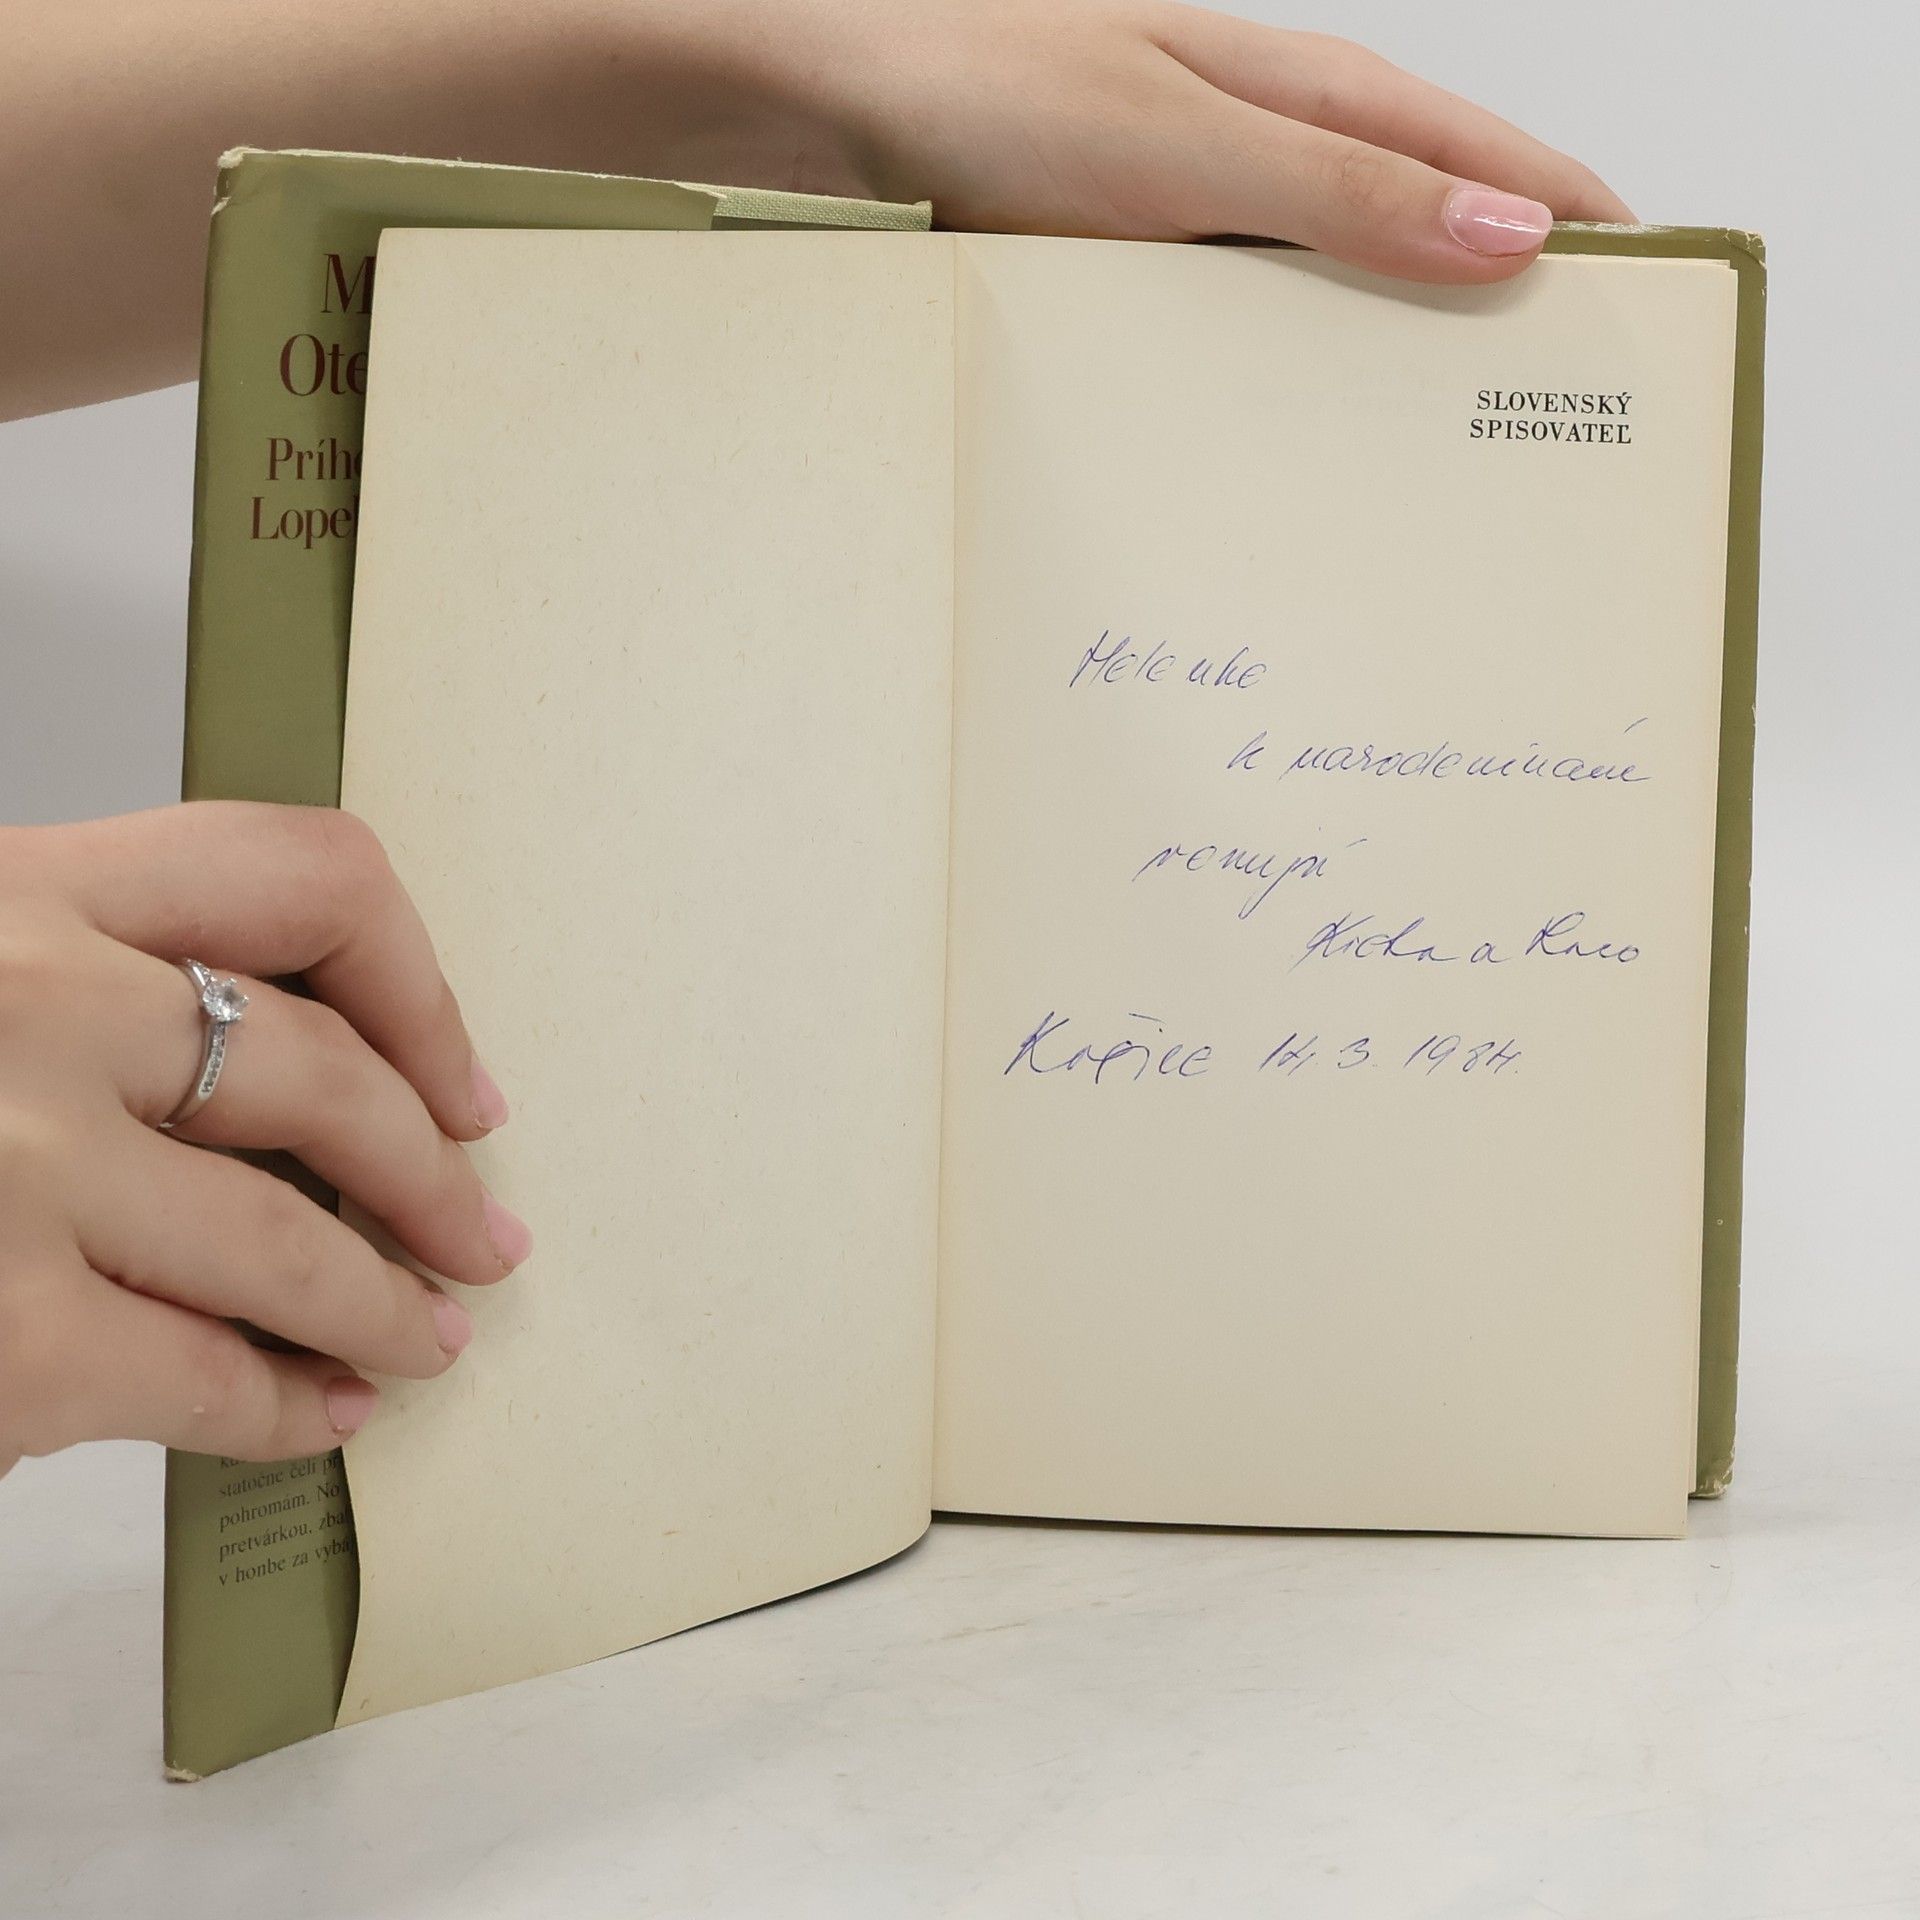 M
Ote
Prího
Lope
statočne čelí pr
pohromám. No
pretvárkou, zba
v honbe za vybá
SLOVENSKÝ
SPISOVATEĽ
Helenke
k narodeninám
venujú
a Laco
Košice 14. 3. 1984.